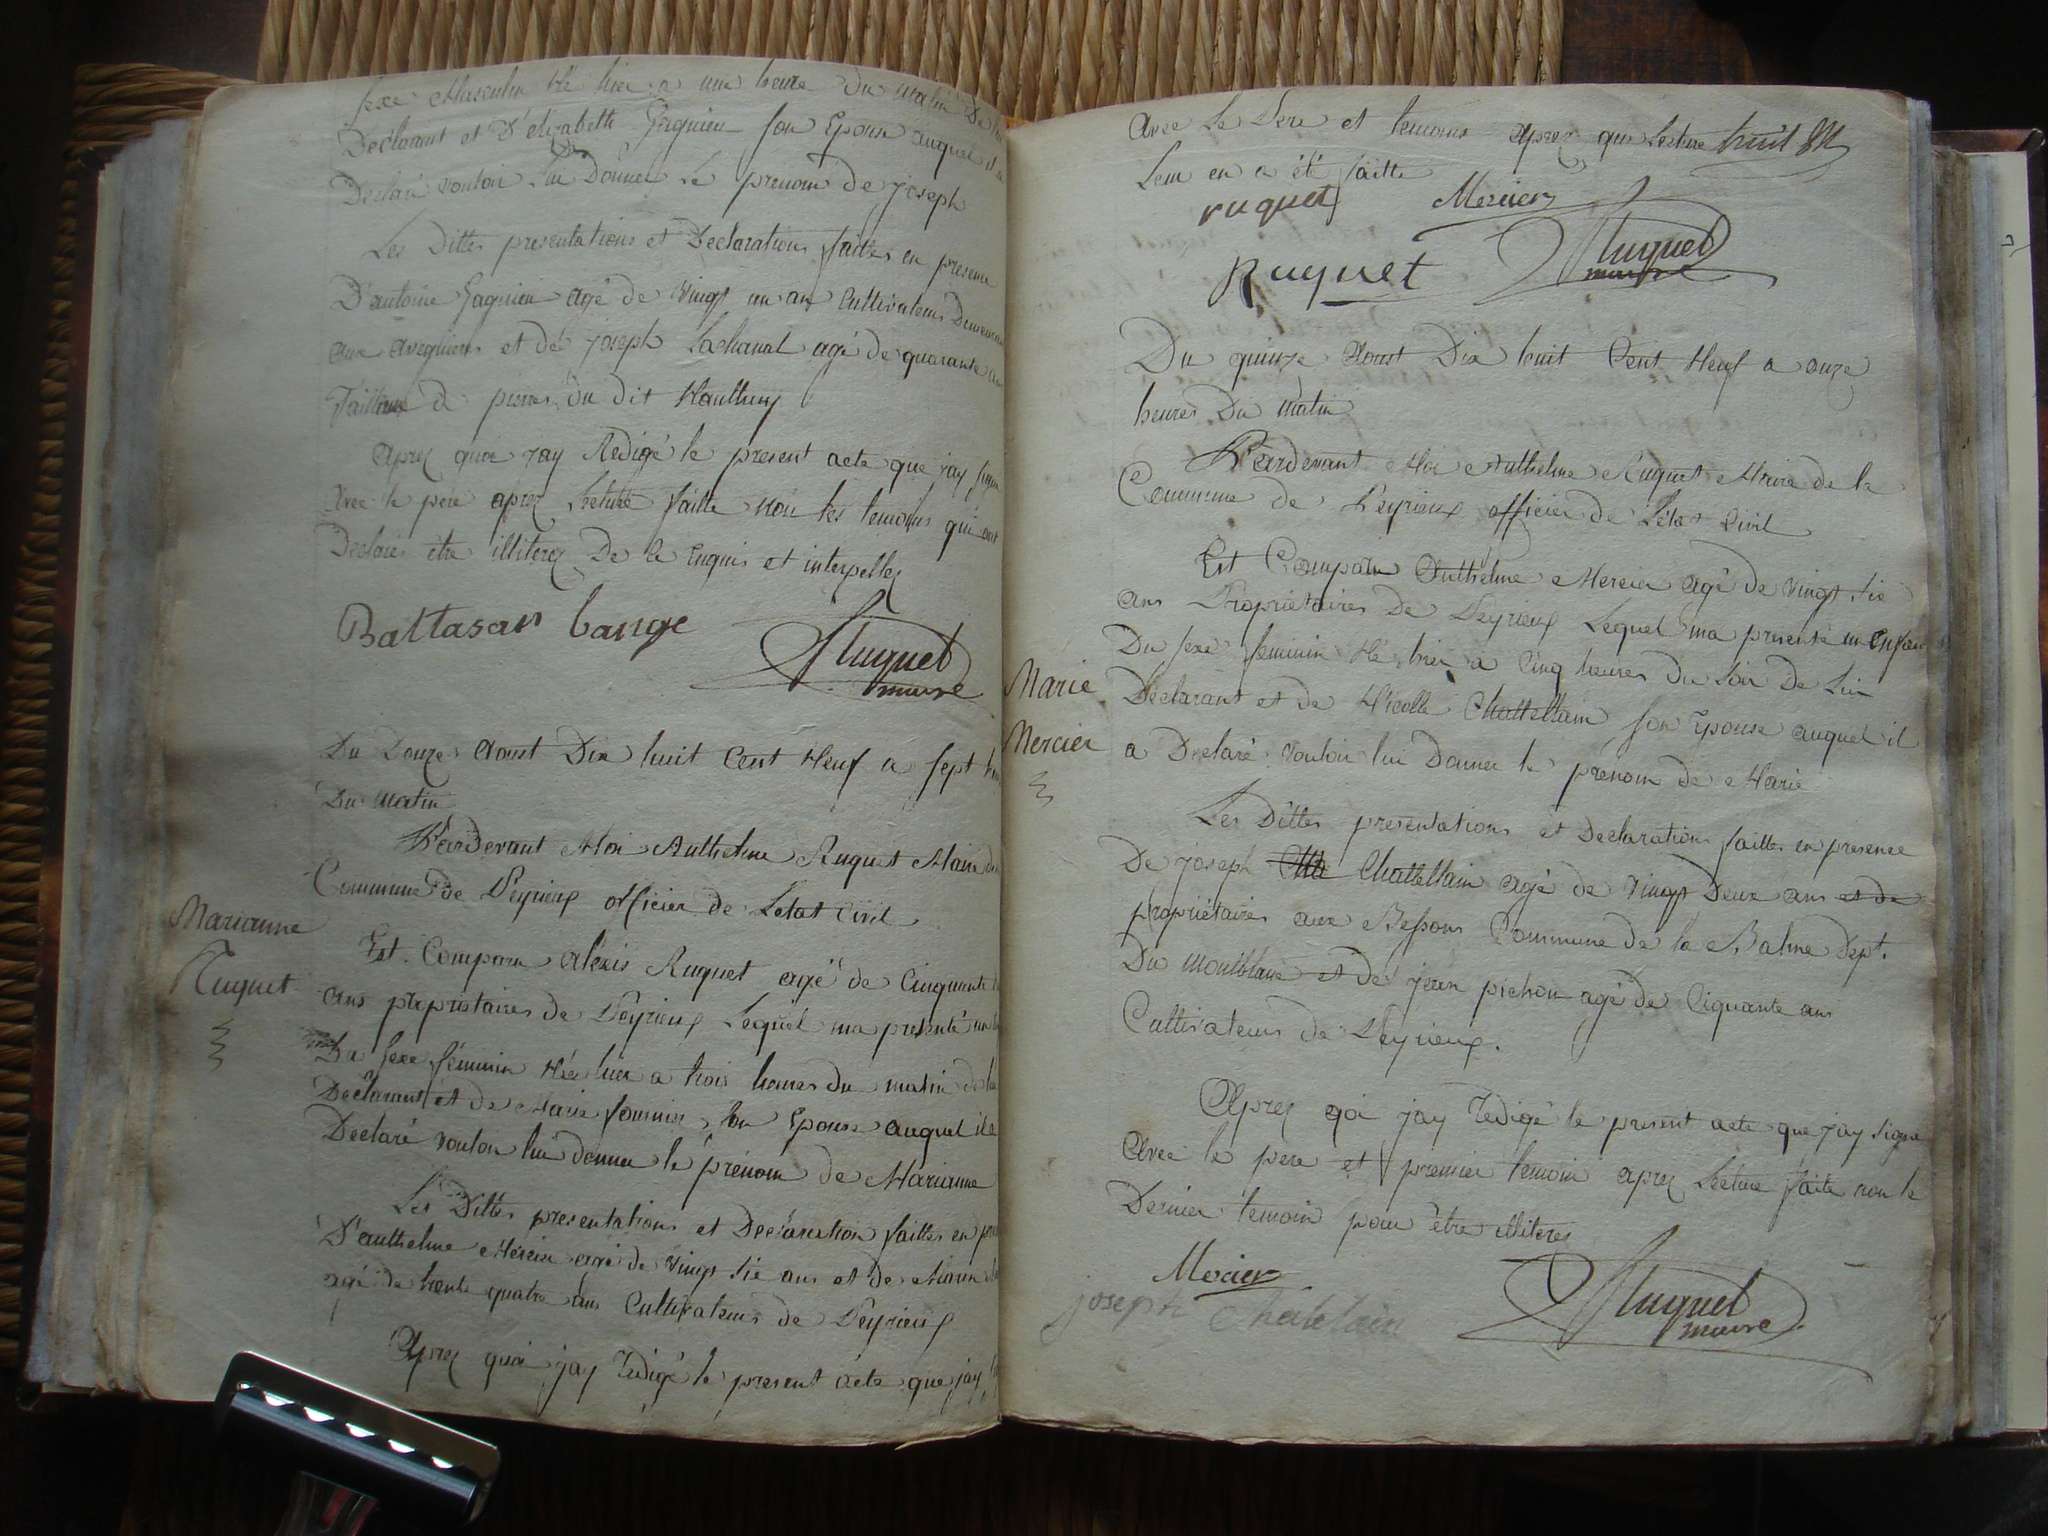 sexe Masculin Né hier a une heure du matin De lui
Déclarant et D'elizabeth Gagnieu son Epouse auquel il a
Declaré vouloir lui Donner Le prenom de joseph
Les Dittes presentations et Declarations faittes en presence
D'antoine Gagnieu agé de vingt un an Cultivateur
aux et de joseph Lachanal agé de quarante
Tailleur de pierres du dit
Aprez quoi jay Redigé le present acte que jay signé
avec le pere aprez Lecture faitte non les temoins qui ont
Declarés être illiterez De ce Enquis et interpellez
Baltasar Cange
Ruguet
maire
Du Douze Aoust Dix huit Cent Neuf a sept
Du matin
Pardevant Moi Anthelme Ruguet Maire de
Commune de Peyrieux officier de Letat Civil
Marianne
Ruguet
Est Comparu alexis Ruguet agé de Cinquante
ans propriétaires de Peyrieux Lequel ma presenté un
Du sexe féminin Née hier a trois heures du matin de lui
Déclarant et de Marie son Epouse auquel il a
Declaré vouloir lui donner le prénom de Marianne
Les Dittes presentations et Declaration faittes en
D'anthelme Mercier agé de vingt sie ans et de
agé de trente quatre ans Cultivateurs de Peyrieux
Aprez quoi jay Redigé le present acte que jay
avec Le Pere et temoins aprez que Lecture
Leur en a été faitte
ruguet Mercier
Ruguet Ruguet
maire
Du quinze Aoust Dix huit Cent Neuf a onze
heures Du matin
Pardevant Moi Anthelme Ruguet Maire de la
Commune de Peyrieux officier de Létat Civil
Est Comparu Anthelme Mercier agé de vingt sie
ans Propriétaires De Peyrieux Lequel ma presenté un Enfant
Marie
Mercier
Du sexe feminin Né hier a Cinq heures Du soir De Lui
Déclarant et de Nicolle Chattellain son Epouse auquel il
a Declaré vouloir lui Donner le prénom de Marie
Les Dittes presentations et Declarations faittes en presence
De joseph Chattellain agé de vingt Deux ans et de
propriétaires aux Bessons Commune de la Balme Dept.
Du montblanc et de jean pichon agé de Ciquante ans
Cultivateurs de Peyrieux.
Aprez qoi jay Redigé le present acte que jay signé
avec le pere et premier temoin aprez Lecture faite non le
Dernier temoin pour être illiterez
Mercier
joseph Chatelain
Ruguet
maire